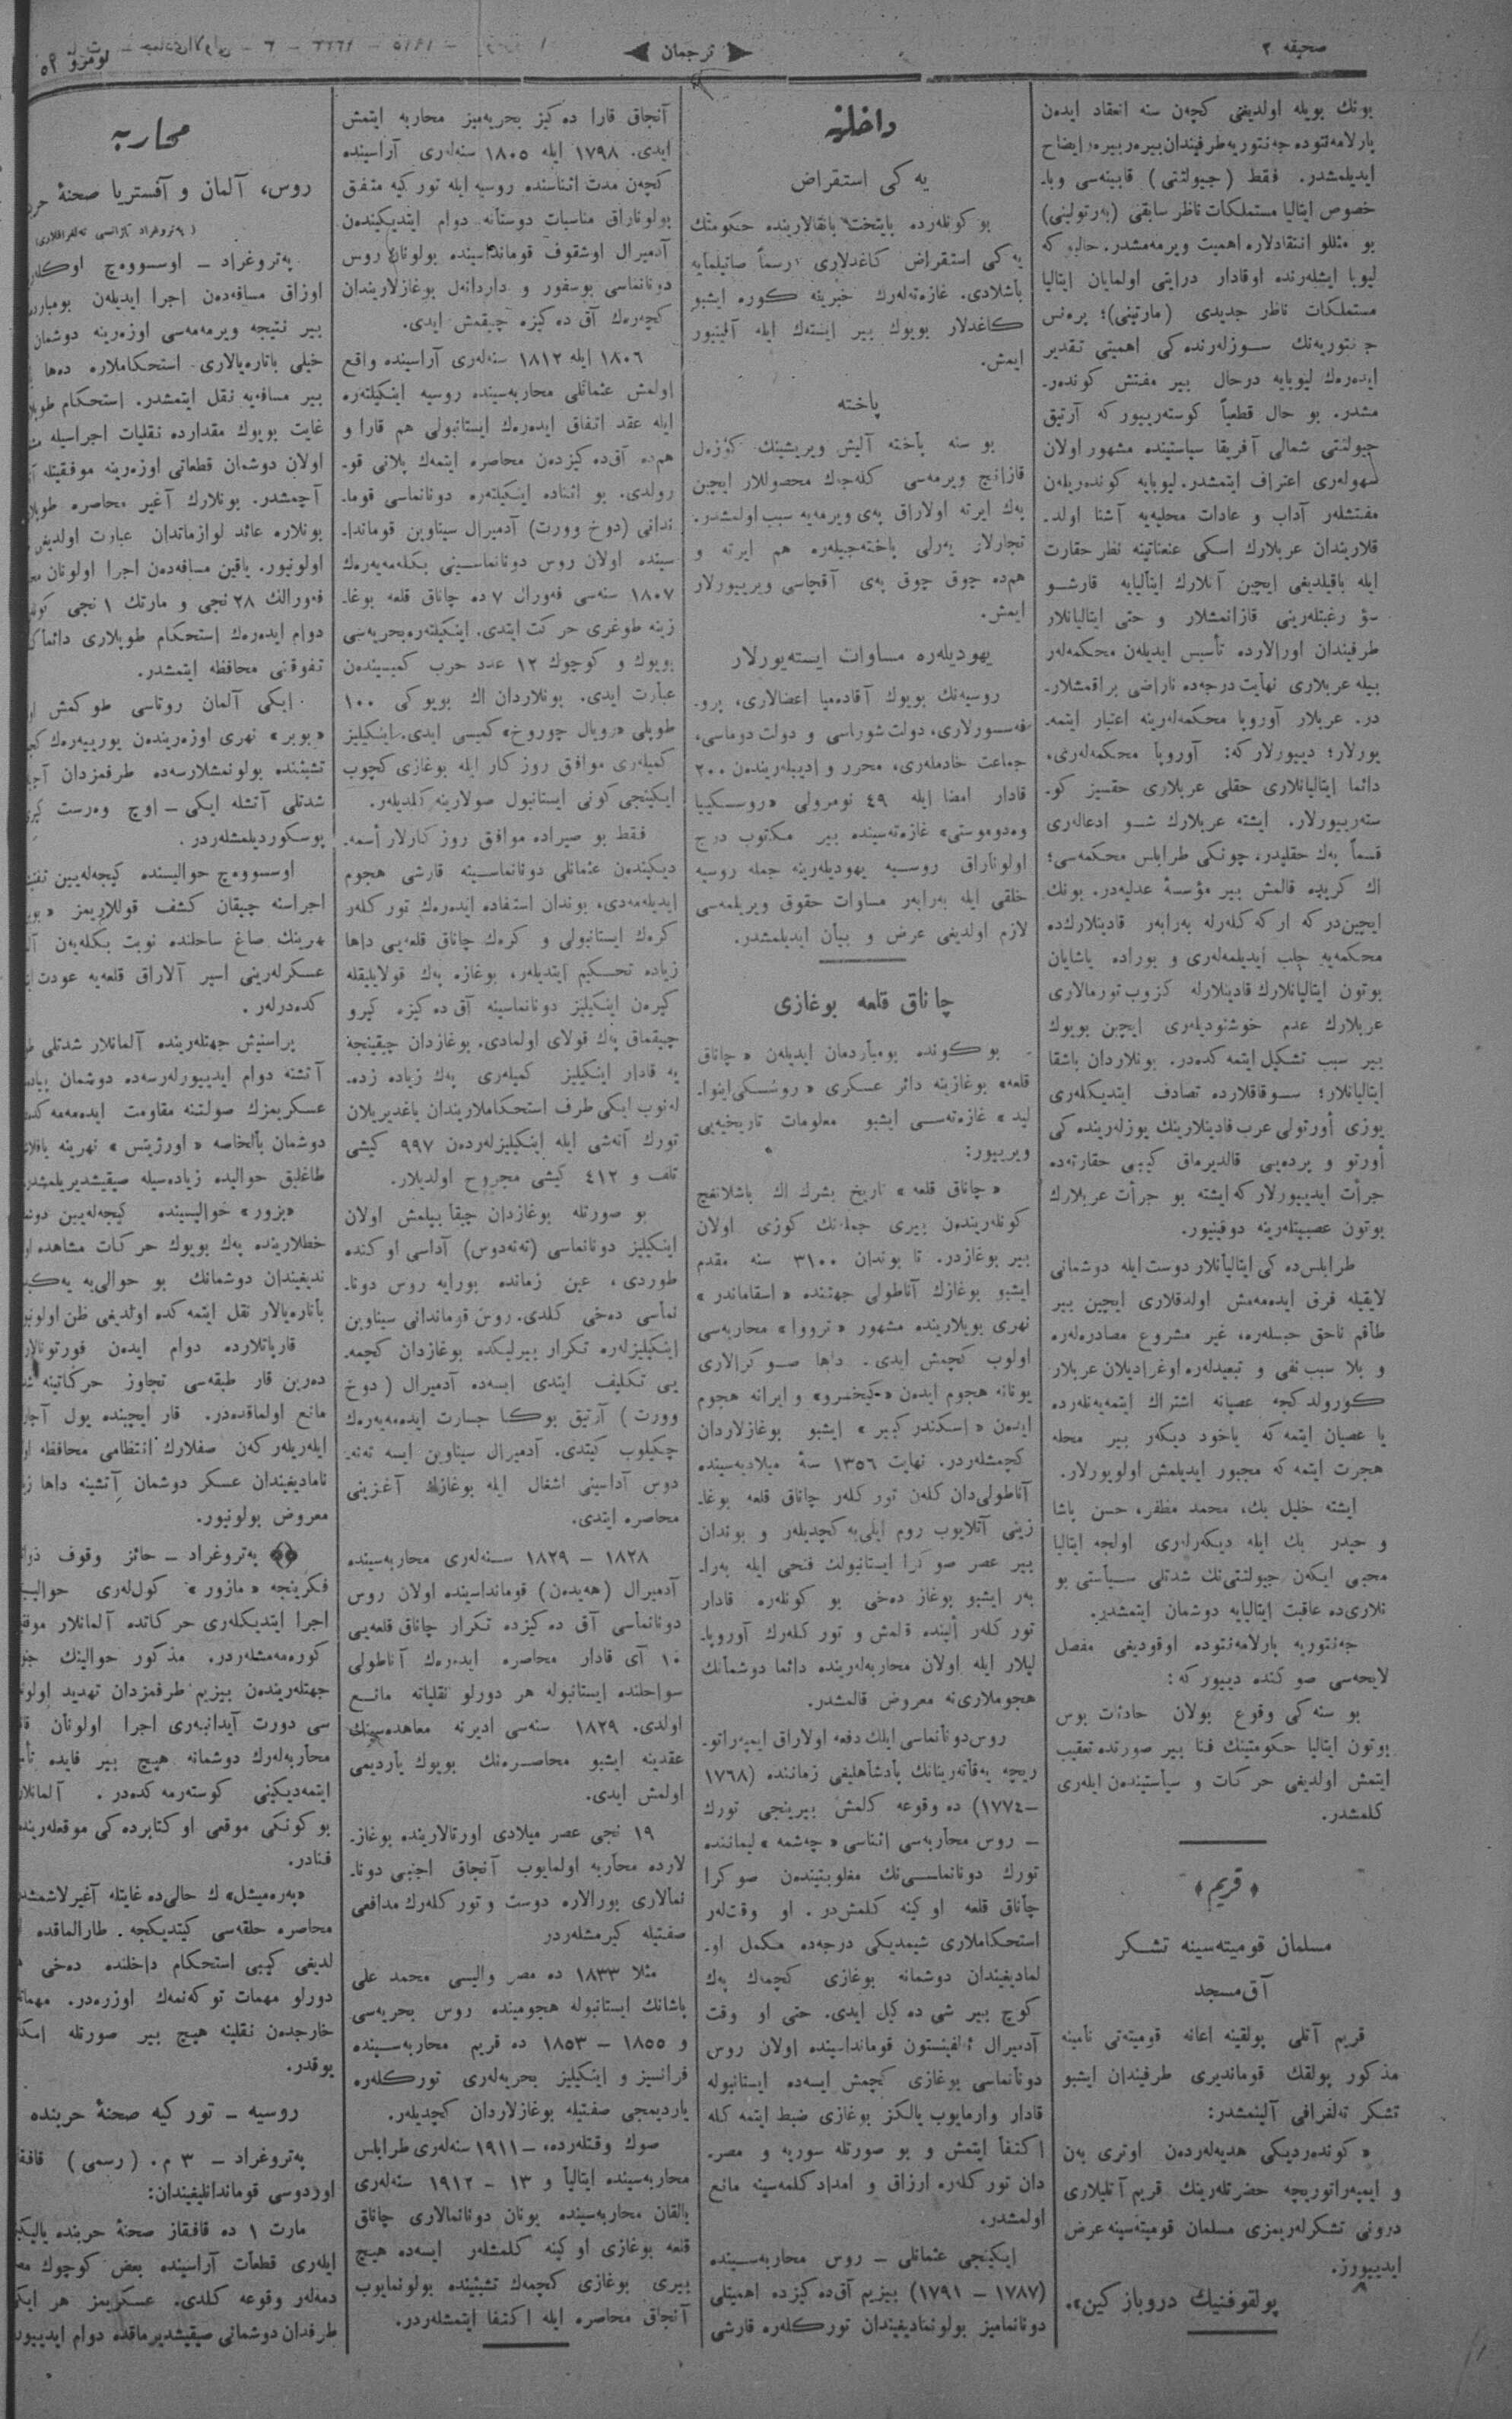 صحيفه ٢
ترجمان
نومرو ٥٩
بونك بويله اولديغنى كچەن سنه انعقاد ايدەن
پارلامەنتودە جەنتوريه طرفيندان بيرەر بيرەر ايضاح
ايديلمشدر. فقط (جيولتتى) قابينەسى وبا۔
خصوص ايتاليا مستملكات ناظر سابقى (بەرتولينى)
بو مثللو انتقادلارە اهميت ويرمەمشدر. حالبو كه
ليويا ايشلەرندە اوقادار درايتى اولمايان ايتاليا
مستملكات ناظر جديدى (مارتينى)؛ پرەنس
جەنتوريەنك سوزلەرندەكى اهميتى تقدير
ايدەرەك ليويايه درحال بير مفتش كوندەر۔
مشدر. بو حال قطعياً كوستەرييور كه آرتيق
جيولتتى شمالى آفريقا سياستيندە مشهور اولان
سهولەرى اعتراف ايتمشدر. ليويايه كوندەريلەن
مفتشلەر آداب و عادات محليەيه آشنا اولد۔
قلاريندان عربلارك اسكى عنعناتينه نظر حقارت
ايله باقيلديغى ايچين آنلارك ايتاليايه قارشو
سؤ رغبتلەرينى قازانمشلار و حتى ايتاليانلار
طرفيندان اورالاردە تأسيس ايديلەن محكمەلەر
بيله عربلارى نهايت درجەدە ناراضى براقمشلار۔
در. عربلار آوروپا محكمەلەرينه اعتبار ايتمە۔
يورلار؛ دييورلار كه: آوروپا محكمەلەرى،
دائما ايتاليانلارى حقلى عربلارى حقسيز كو۔
ستەرييورلار. ايشته عربلارك شو ادعالەرى
قسماً پەك حقليدر، چونكى طرابلس محكمەسى؛
اك كريدە قالمش بير مؤسسۀ عدليەدر. بونك
ايچيندر كه اركەكلەرله بەرابەر قادينلاركدە
محكمەيه جلب ايديلمەلەرى و بورادە ياشايان
بوتون ايتاليانلارك قادينلارله كزوب تورمالارى
عربلارك عدم خوشنوديلەرى ايچين بويوك
بير سبب تشكيل ايتمەكدەدر. بونلاردان باشقا
ايتاليانلار؛ سوقاقلاردە تصادف ايتديكلەرى
يوزى أورتولى عرب قادينلارينك يوزلەريندەكى
أورتو و پردەيى قالديرماق كيبى حقارتەدە
جرأت ايدييورلار كه ايشته بو جرأت عربلارك
بوتون عصبيتلەرينه دوقنيور.
طرابلسدەكى ايتاليانلار دوست ايله دوشمانى
لايقيله فرق ايدەمەمش اولدقلارى ايچين بير
طاقم ناحق حبسلەرە، غير مشروع مصادرەلەرە
و بلا سبب نفى و تبعيدلەرە اوغراديلان عربلار
كورولدكچه عصيانه اشتراك ايتمەيەنلەردە
يا عصيان ايتمەكه ياخود ديكەر بير محله
هجرت ايتمەكه مجبور ايديلمش اولويورلار.
ايشته خليل بك، محمد مظفر، حسن پاشا
و حيدر بك ايله ديكەرلەرى اولجه ايتاليا
محبى ايكەن جيولتتىنك شدتلى سياستى بو
نلارىدە عاقبت ايتاليايه دوشمان ايتمشدر.
جەنتوريه پارلامەنتودە اوقوديغى مفصل
لايحەسى صوكندە دييور كه:
بو سنەكى وقوع بولان حادثات بوس
بوتون ايتاليا حكومتينك فنا بير صورتدە تعقيب
ايتمش اولديغى حركات و سياستيندەن ايلەرى
كلمشدر.
﴿قريم﴾
مسلمان قوميتەسينه تشكر
آق مسجد
قريم آتلى پولقينه اعانه قوميتەتى نامينه
مذكور پولقك قومانديرى طرفيندان ايشبو
تشكر تەلغرافى آلينمشدر:
« كوندەرديكى هديەلەردەن اوترى بەن
و ايمپەراتوريچه حضرتلەرينك قريم آتليلارى
درونى تشكرلەريمزى مسلمان قوميتەسينه عرض
ايدييورز.
پولقوفنيك دروباز كين».
داخليه
يەكى استقراض
بو كونلەردە پايتخت بانقالاريندە حكومتك
يەكى استقراض كاغدلارى رسماً صاتيلمايه
باشلادى. غازەتەلەرك خبرينه كورە ايشبو
كاغدلار بويوك بير ايستەك ايله آلينيور
ايمش.
پاخته
بو سنه پاخته آليش ويريشينك كوزەل
قازانج ويرمەسى كلەجەك محصوللار ايچين
پەك ايرته اولاراق پەى ويرمەيه سبب اولمشدر.
تجارلار يەرلى پاختەجيلەرە هم ايرته و
همدە چوق چوق پەى آقچاسى ويرييورلار
ايمش.
يهوديلەرە مساوات ايستەيورلار
روسيەنك بويوك آقادەميا اعضالارى، پرو۔
فەسسورلارى، دولت شوراسى و دولت دوماسى،
جماعت خادملەرى، محرر و اديبلەريندەن ٢٠٠
قادار امضا ايله ٤٩ نومرولى «روسكييا
وەدوموستى» غازەتەسيندە بير مكتوب درج
اولوناراق روسيه يهوديلەرينه جمله روسيه
خلقى ايله بەرابەر مساوات حقوق ويريلمەسى
لازم اولديغى عرض و بيان ايديلمشدر.
چاناق قلعه بوغازى
بو كوندە بومباردمان ايديلەن «چاناق
قلعه» بوغازينه دائر عسكرى «روسسكى اينوا۔
ليد» غازەتەسى ايشبو معلومات تاريخيەيى
ويرييور:
«چاناق قلعه» تاريخ بشرك اك باشلانغچ
كونلەريندەن بيرى جملەنك كوزى اولان
بير بوغازدر. تا بوندان ٣١٠٠ سنه مقدم
ايشبو بوغازك آناطولى جهتندە «اسقاماندر»
نهرى بويلاريندە مشهور «ترووا» محاربەسى
اولوب كچمش ايدى. داها صوكرالارى
يونانه هجوم ايدەن «كيخسرو» و ايرانه هجوم
ايدەن «اسكندر كبير» ايشبو بوغازلاردان
كچمشلەردر. نهايت ١٣٥٦ سنۀ ميلاديەسيندە
آناطولىدان كلەن توركلەر چاناق قلعه بوغا۔
زينى آتلايوب روم ايلىيه كچديلەر و بوندان
بير عصر صوكرا ايستانبولك فتحى ايله بەرا۔
بەر ايشبو بوغاز دەخى بو كونلەرە قادار
توركلەر ألينده قالمش و توركلەرك آوروپا۔
ليلار ايله اولان محاربەلەريندە دائما دوشمانك
هجوملارىنه معروض قالمشدر.
روس دونانماسى ايلك دفعه اولاراق ايمپەراتو۔
ريچه يەقاتەرينانك پادشاهليغى زماننده (١٧٦٨
–١٧٧٤) دە وقوعه كلمش بيرينجى تورك
– روس محاربەسى اثناسى «چەشمه» ليماننده
تورك دونانماسىنك مغلوبيتيندەن صوكرا
چاناق قلعه اوكينه كلمشدر. او وقتلەر
استحكاملارى شيمديكى درجەدە مكمل او۔
لماديغيندان دوشمانه بوغازى كچمەك پەك
كوچ بير شى دەكل ايدى. حتى او وقت
آدميرال ئلفينستون قومانداسيندە اولان روس
دونانماسى بوغازى كچمش ايسەدە ايستانبوله
قادار وارمايوب يالكز بوغازى ضبط ايتمەكله
اكتفا ايتمش و بو صورتله سوريه و مصر۔
دان توركلەرە ارزاق و امداد كلمەسينه مانع
اولمشدر.
ايكينجى عثمانلى – روس محاربەسيندە
(١٧٨٧ – ١٧٩١) بيزيم آق دەكيزدە اهميتلى
دونانماميز بولونماديغيندان توركلەرە قارشى
آنجاق قارا دەكيز بحريەميز محاربه ايتمش
ايدى. ١٧٩٨ ايله ١٨٠٥ سنەلەرى آراسيندە
كچەن مدت اثناسندە روسيه ايله توركيه متفق
بولوناراق مناسبات دوستانه دوام ايتديكيندەن
آدميرال اوشقوف قومانداسيندە بولونان روس
دونانماسى بوسفور و داردانەل بوغازلاريندان
كچەرەك آق دەكيزە چيقمش ايدى.
١٨٠٦ ايله ١٨١٢ سنەلەرى آراسيندە واقع
اولمش عثمانلى محاربەسيندە روسيه اينكيلتەرە
ايله عقد اتفاق ايدەرەك ايستانبولى هم قارا و
همدە آق دەكيزدەن محاصرە ايتمەك پلانى قو۔
رولدى. بو اثنادە اينكيلتەرە دونانماسى قوما۔
ندانى (دوخ وورت) آدميرال سيناوين قوماندا۔
سيندە اولان روس دونانماسينى بكلەمەيەرەك
١٨٠٧ سنەسى فەورال ٧دە چاناق قلعه بوغا۔
زينه طوغرى حركت ايتدى. اينكيلتەرە بحريەسى
بويوك و كوچوك ١٢ عدد حرب كميسيندەن
عبارت ايدى. بونلاردان اك بويوكى ١٠٠
طوپلى «رويال چوروخ» كميسى ايدى. اينكيليز
كميلەرى موافق روزكار ايله بوغازى كچوب
ايكينجى كونى ايستانبول صولارينه كلديلەر.
فقط بو صيرادە موافق روزكارلار أسمە۔
ديكيندەن عثمانلى دونانماسينه قارشى هجوم
ايديلەمەدى، بوندان استفادە ايدەرەك توركلەر
كرەك ايستانبولى و كرەك چاناق قلعەيى داها
زيادە تحكيم ايتديلەر، بوغازە پەك قولايليقله
كيرەن اينكيليز دونانماسينه آق دەكيزە كيرو
چيقماق پەك قولاى اولمادى. بوغازدان چيقينجه
يه قادار اينكيليز كميلەرى پەك زيادە زدە۔
لەنوب ايكى طرف استحكاملاريندان ياغديريلان
تورك آتەشى ايله اينكيليزلەردەن ٩٩٧ كيشى
تلف و ٤١٢ كيشى مجروح اولديلار.
بو صورتله بوغازدان چيقا بيلمش اولان
اينكيليز دونانماسى (تەنەدوس) آداسى اوكندە
طوردى، عين زماندە بورايه روس دونا۔
نماسى دەخى كلدى. روس قومندانى سيناوين
اينكيليزلەرە تكرار بيرليكدە بوغازدان كچمە۔
يى تكليف ايتدى ايسەدە آدميرال (دوخ
وورت) آرتيق بوكا جسارت ايدەمەيەرەك
چكيلوب كيتدى. آدميرال سيناوين ايسه تەنە۔
دوس آداسينى اشغال ايله بوغازك آغزينى
محاصرە ايتدى.
١٨٢٨ – ١٨٢٩ سنەلەرى محاربەسيندە
آدميرال (هەيدەن) قومانداسيندە اولان روس
دونانماسى آق دەكيزدە تكرار چاناق قلعەيى
١٠ آى قادار محاصرە ايدەرەك آناطولى
سواحلندە ايستانبوله هر دورلو نقلياته مانع
اولدى. ١٨٢٩ سنەسى اديرنه معاهدەسينك
عقدينه ايشبو محاصرەنك بويوك يارديمى
اولمش ايدى.
١٩ نجى عصر ميلادى اورتالاريندە بوغاز۔
لاردە محاربه اولمايوب آنجاق اجنبى دونا۔
نمالارى بورالارە دوست و توركلەرك مدافعى
صفتيله كيرمشلەردر
مثلا ١٨٣٣ دە مصر واليسى محمد على
پاشانك ايستانبوله هجوميندە روس بحريەسى
و ١٨٥٥ – ١٨٥٣ دە قريم محاربەسيندە
فرانسيز و اينكيليز بحريەلەرى توركلەرە
يارديمجى صفتيله بوغازلاردان كچديلەر.
صوك وقتلەردە، – ١٩١١ سنەلەرى طرابلس
محاربەسيندە ايتاليا و ١٣ – ١٩١٢ سنەلەرى
بالقان محاربەسيندە يونان دونانمالارى چاناق
قلعه بوغازى اوكينه كلمشلەر ايسەدە هيچ
بيرى بوغازى كچمەك تشبثيندە بولونمايوب
آنجاق محاصرە ايله اكتفا ايتمشلەردر.
محاربه
روس، آلمان و آفستريا صحنۀ
(پەتروغراد آژانسى تەلغرافلارى)
پەتروغراد – اوسسووەچ
اوزاق مسافەدەن اجرا ايديلەن
بير نتيجه ويرمەمەسى اوزەرينه دوشمان
خيلى باتارەيالارى استحكاملارە دەها
بير مسافەيه نقل ايتمشدر. استحكام
غايت بويوك مقداردە نقليات اجراسيله
اولان دوشمان قطعاتى اوزەرينه موفقيتله
آچمشدر. بونلارك آغير محاصرە
بونلارە عائد لوازماتدان عبارت
اولونيور. ياقين مسافەدەن اجرا اولونان
فەورالك ٢٨ نجى و مارتك ١ نجى
دوام ايدەرەك استحكام طوپلارى
تفوقنى محافظه ايتمشدر.
ايكى آلمان روتاسى طوكمش
«بوبر» نهرى اوزەريندەن يورييەرەك
تشبثندە بولونمشلارسەدە طرفمزدان
شدتلى آتشله ايكى – اوچ وەرست
پوسكورديلمشلەردر.
اوسسووەچ حواليسندە كيجەلەيين
اجراسنه چيقان كشف قوللاريمز
نهرينك صاغ ساحلندە نوبت بكلەيەن
عسكرلەرينى اسير آلاراق قلعەيه عودت
كدەدرلەر.
پراسنيش جهتلەريندە آلمانلار شدتلى
آتشنه دوام ايدييورلەرسەدە دوشمان
عسكريمزك صولتنه مقاومت
دوشمان بالخاصه «اورژيتس» نهرينه
طاغليق حواليدە زيادەسيله صيقيشديريلمشدر.
«بزور» حواليسيندە كيجەلەيين
خطلاريندە پەك بويوك حركات مشاهدە
نديغيندان دوشمانك بو حوالىيه
باتارەيالار نقل ايتمەكدە اولديغى ظن
قارپاتلاردە دوام ايدەن
دەرين قار طبقەسى تجاوز حركاتينه
مانع اولماقدەدر. قار ايچيندە يول
ايلەريلەركەن صفلارك انتظامى محافظه
ناماديغيندان عسكر دوشمان آتشينه داها
معروض بولونيور.
پەتروغراد – حائز وقوف
فكرينجه «مازور» كوللەرى
اجرا ايتديكلەرى حركاتدە آلمانلار
كورەمەمشلەردر. مذكور حوالينك
جهتلەريندەن بيزيم طرفمزدان تهديد
سى دورت آيدانبەرى اجرا اولونان
محاربەلەرك دوشمانه هيچ بير فايدە
ايتمەديكينى كوستەرمەكدەدر. آلمانلار
بو كونكى موقعى اوكتابردەكى
فنادر.
«پەرەميشل»ك حالىدە غايتله
محاصرە حلقەسى كيتديكچه طارالماقدە
لديغى كيبى استحكام داخلندە دەخى
دورلو مهمات توكەنمەك اوزرەدر.
خارجدەن نقلينه هيچ بير صورتله
يوقدر.
روسيه – توركيه صحنۀ حربندە
پەتروغراد – ٣ م. (رسمى)
اوردوسى قومانداتليغيندان:
مارت ١ دە قافقاز صحنۀ حربندە
ايلەرى قطعات آراسيندە بعض كوچوك
دمەلەر وقوعه كلدى. عسكريمز هر
طرفدان دوشمانى صيقيشديرماقدە دوام